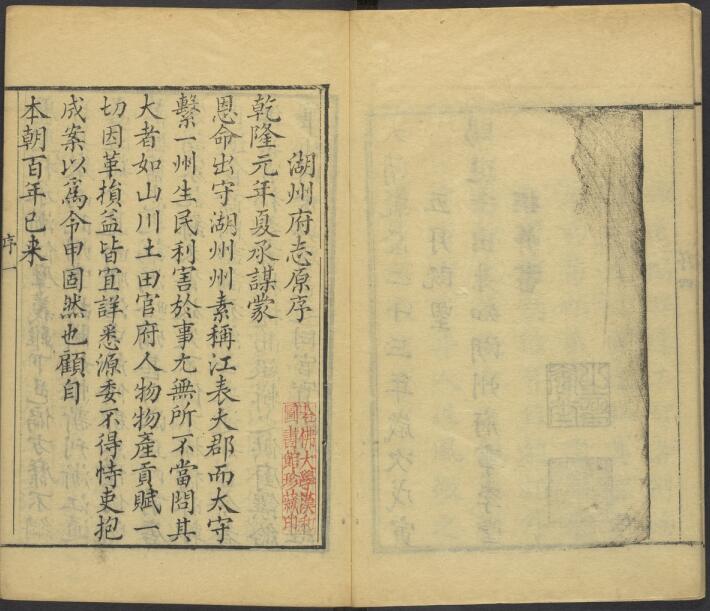 湖州府志原序
乾隆元年夏承謀蒙
恩命出守湖州州素稱江表大郡而太守
繫一州生民利害於事尤無所不當問其
大者如山川土田官府人物物產貢賦一
切因革損益皆宜詳悉源委不得恃吏抱
成案以爲令甲固然也顧自
本朝百年已来
序一
哈佛大學漢和
圖書館珍藏印